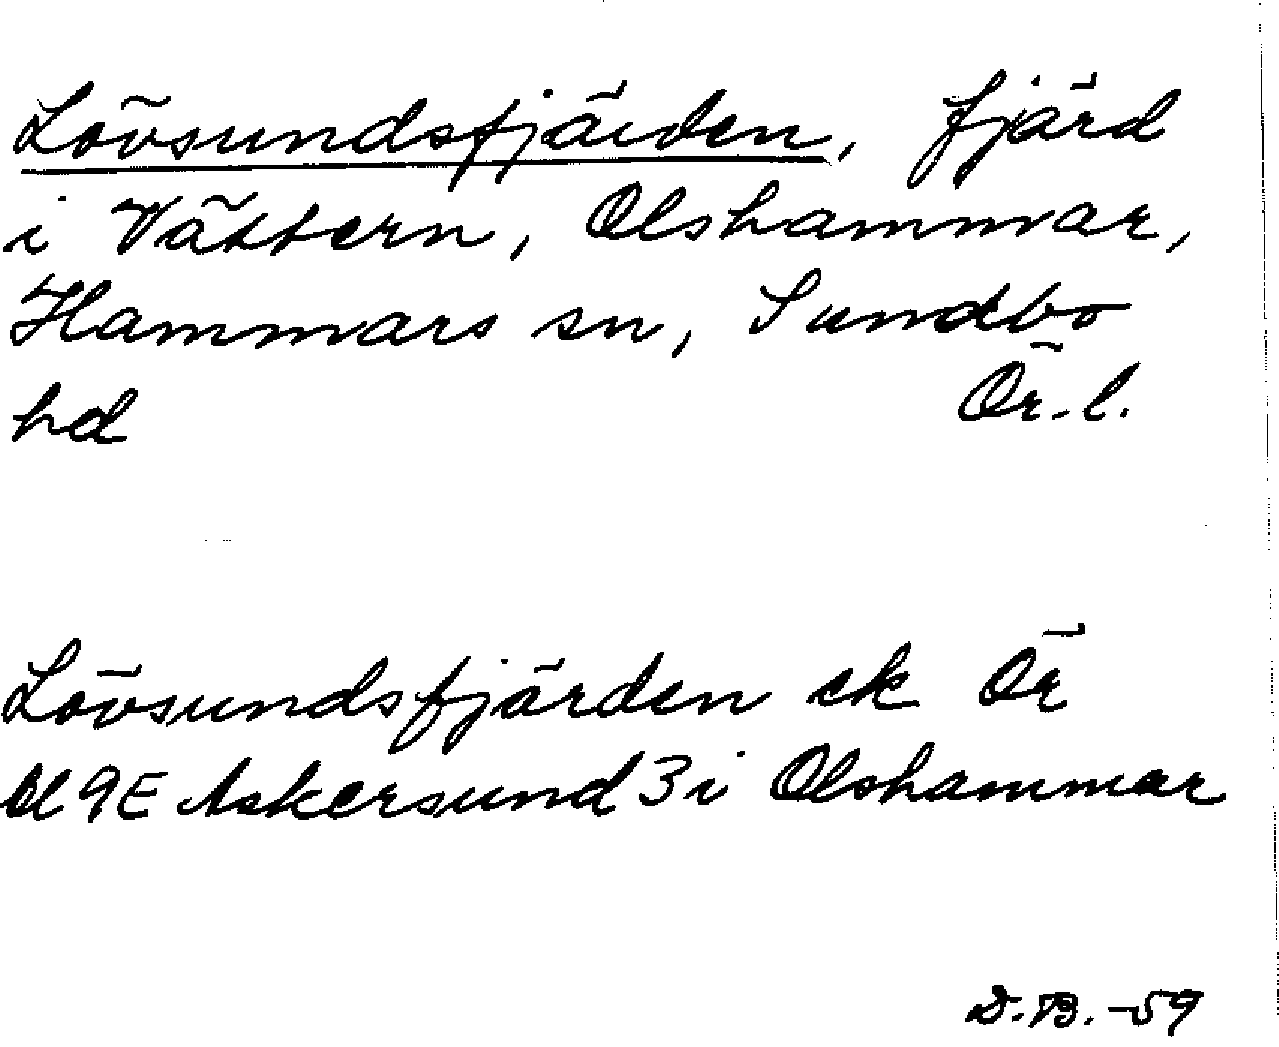 Lövsundsfjärden, fjärd
i Vättern, Olshammar,
Hammars sn, Sundbo
hd Ör. l.
Lövsundsfjärden ek Ör
Bl 9E Askersund 3i Olshammar
D.B. -59